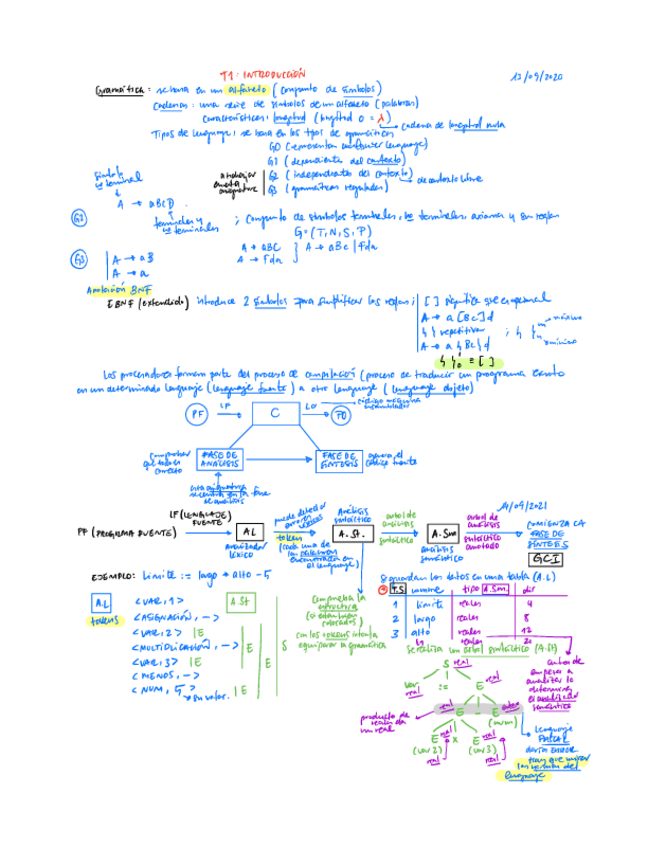 T1: INTRODUCCIÓN 13/09/2020
Gramática: se basa en un alfabeto (conjunto de símbolos)
Cadenas: una serie de símbolos de un alfabeto (palabras)
características: longitud (longitud 0 = λ) → cadena de longitud nula
Tipos de lenguaje: se basa en los tipos de gramáticas
G0 (representan cualquier lenguaje)
G1 (dependiente del contexto)
a trabajar en esta asignatura G2 (independientes del contexto) → de contexto libre
G3 (gramáticas regulares)
símbolo no terminal
A → aBcD
terminales y no terminales
G2 ; conjunto de símbolos terminales, no terminales, axioma y sus reglas
G=(T,N,S,P)
A → aBC A → aBc | Fda
A → Fda
G3 A → aB
A → a
Anotación BNF
EBNF (extendido) introduce 2 símbolos para simplificar las reglas; [ ] significa que es opcional
A → a[Bc]d
{ } repetitiva ; { }
A → a{Bc}d
máximo
mínimo
{ } = [ ]
Los procesadores forman parte del proceso de compilación (proceso de traducir un programa escrito
en un determinado lenguaje (lenguaje fuente) a otro lenguaje (lenguaje objeto)
PF LF C LO PO
código máquina
comprobar que todo es correcto FASE DE ANÁLISIS FASE DE SÍNTESIS genera el código
esta asignatura se centra en la fase de análisis
14/09/2021
PF (PROGRAMA FUENTE) LF (LENGUAJE FUENTE) AL puede detectar errores léxicos Análisis sintáctico A.St. árbol de análisis sintáctico A.Sm árbol de análisis sintáctico anotado COMIENZA LA FASE DE SÍNTESIS
Analizador léxico tokens (cada una de las palabras encontradas en el lenguaje) análisis semántico GCI
EJEMPLO: Límite := largo * alto - 5
Se guardan los datos en una tabla (A.L)
A.L <VAR, 1> A.St
tokens <ASIGNACIÓN, ->
<VAR, 2> | E
<MULTIPLICACIÓN, -> | E
<VAR, 3> | E
<MENOS, ->
<NUM, 5> | E
su valor
E
S
Comprueba la estructura (si están bien colocados)
con los tokens intenta equiparar la gramática
T.S nombre tipo A.Sm. dir
1 límite reales 4
2 largo reales 8
3 alto reales 12
Se realiza un árbol sintáctico (A.St)
S real
var real := E real
real E - E entero
(num)
E real x E real
(var 2) (var 3)
real real
producto de reales da un real
antes de empezar a analizar lo determina el analizador semántico
Lenguaje PASCAL daría ERROR
hay que mirar la versión del lenguaje